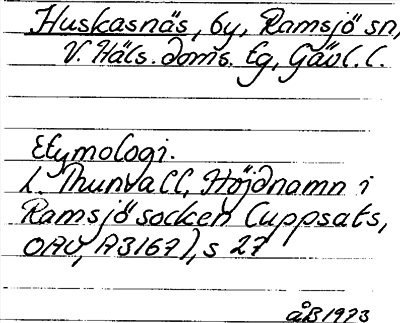 Huskasnäs, by, Ramsjö sn,
V. Häls. doms. tg, Gävl. l.
Etymologi.
L. Thunvall, Höjdnamn i
Ramsjö socken (uppsats,
OAU, A3167), s 27
ÅB 1973